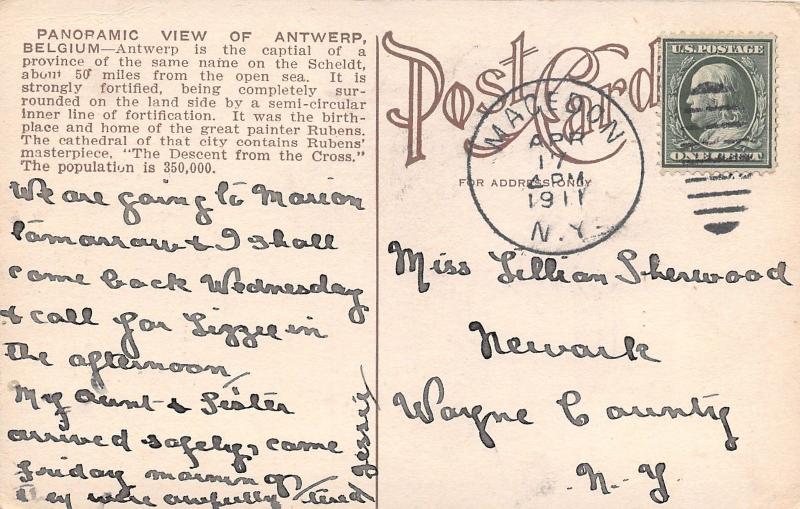 PANORAMIC VIEW OF ANTWERP,
BELGIUM—Antwerp is the captial of a
province of the same name on the Scheldt,
about 50 miles from the open sea. It is
strongly fortified, being completely sur-
rounded on the land side by a semi-circular
inner line of fortification. It was the birth-
place and home of the great painter Rubens.
The cathedral of that city contains Rubens'
masterpiece, "The Descent from the Cross."
The population is 350,000.
We are going to Marion
tomorrow & I shall
come back Wednesday
& call for Lizzie in
the afternoon
My Aunt & Sister
arrived safely, came
Friday morning,
they were awfully tired
Jessie
Post Card
FOR ADDRESS ONLY
MACEDON
APR
17
4 PM
1911
N.Y.
U.S. POSTAGE
ONE CENT
Miss Lillian Sherwood
Newark
Wayne County
N.Y.